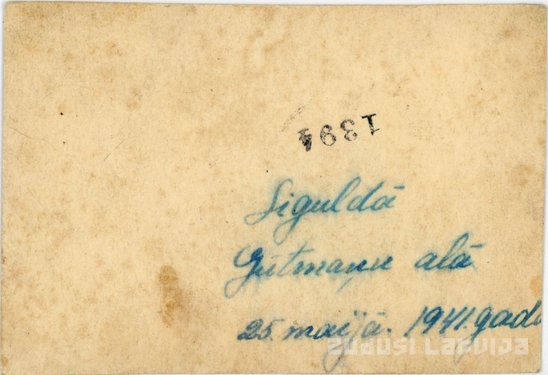 1394
Siguldā
Gūtmaņu alā
25. maijā. 1941. gadā
ZUDUSI LATVIJA